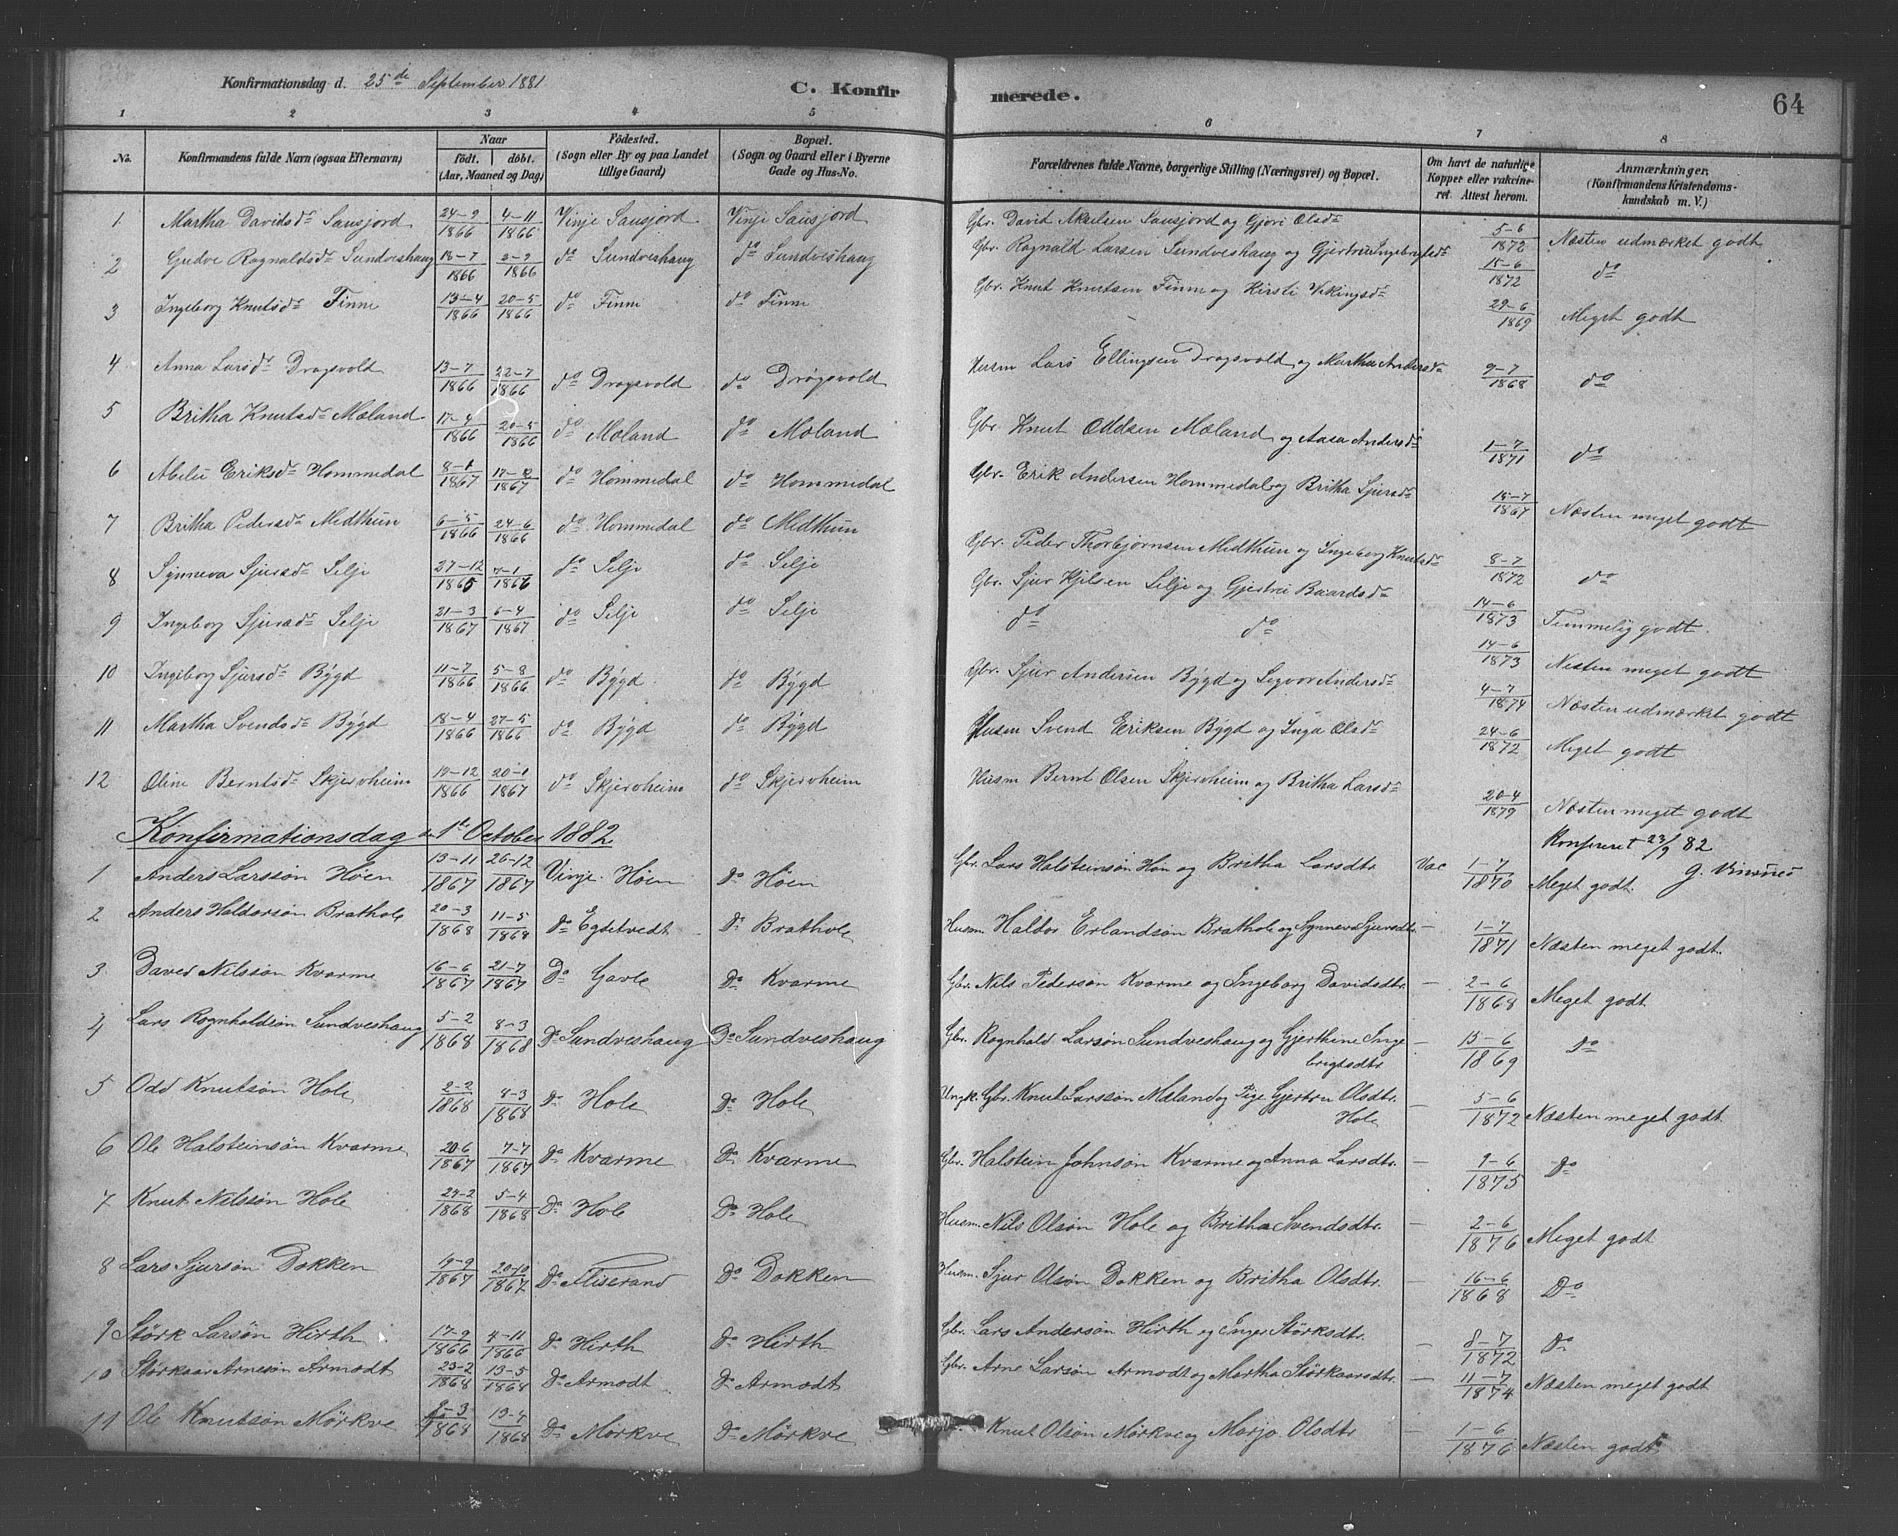 Konfirmationsdag d. 25de September 1881
C. Konfirmerede.
64
1 2 3 4 5 6 7 8
No. Konfirmandens fulde Navn (ogsaa Efternavn) Naar født. døbt. (Aar, Maaned og Dag) Födested. (Sogn eller By og paa Landet tillige Gaard) Bopæl. (Sogn og Gaard eller i Byerne Gade og Hus-No. Forældrenes fulde Navne, borgerlige Stilling (Næringsvei) og Bopæl. Om havt de naturlige Kopper eller vakcineret Attest herom. Anmærkninger. (Konfirmandens Kristendomskundskab m. V.)
1 Martha Davidsdr Sausjord 24-9 1866 4-11 1866 Vinje Sausjord Vinje Sausjord Gbr. David Sausjord og Gjøri Olsdr 5-6 1872 Næsten udmærket godt
2 Gudve Rognaldsdr Sundveshaug 18-7 1866 2-9 1866 do Sundveshaug do Sundveshaug Gbr. Rognald Larsen Sundveshaug og Gjertru Ingebrigtsdr 15-6 1872 do
3 Ingeborg Knutsdr Finne 13-4 1866 20-5 1866 do Finne do Finne Gbr. Knut Knutsen Finne og Kirsti Vikingsdr 29-6 1869 Meget godt
4 Anna Larsdr Dragsvold 13-7 1866 22-7 1866 do Dragsvold do Drøgsvold Husm Lars Ellingsen Dragsvold og Martha Andersdr 9-7 1868 do
5 Britha Knutsdr Mæland 17-4 1866 20-5 1866 do Mæland do Mæland Gbr. Knut Oddsen Mæland og Aasa Andersdr 1-7 1871 do
6 Eriksdr Hommedal 8-1 1867 17- 1867 do Hommedal do Hommedal Gbr. Erik Andersen Hommedal og Britha Sjursdr 18-7 1867 Næsten meget godt
7 Britha Pedersdr Medhun 6-5 1866 24-6 1866 do Hommedal do Midthun Gbr. Peder Thorbjørnsen Midthun og Ingeborg Knutsdr 8-7 1872 do
8 Synneva Sjursdr Selje 27-12 1865 7-1 1866 do Selje do Selje Gbr. Sjur Kjelsen Selje og Gjertru Baardsdr 14-6 1873 Temmelig godt.
9 Ingeborg Sjursdr Selje 21-3 1867 6-4 1867 do Selje do Selje do do 14-6 1873 Næsten meget godt
10 Ingeborg Sjursdr Bÿgd 11-7 1866 5-8 1866 do Bÿgd do Bÿgd Gbr. Sjur Andersen Bÿgd og Andersdr 4-7 1874 Næsten udmærket godt
11 Martha Svendsdr Bÿgd 18-4 1866 27-5 1866 do Bÿgd do Bÿgd Husm Svend Eriksen Bÿgd og Inga Olsdr 24-6 1872 Meget godt
12 Oline Berntsdr Skjerveheim 19-12 1866 20-1 1867 do Skjerveheim do Skjerveheim Husm Bernt Olsen Skjerveheim og Britha Larsdr 20-4 1879 Næsten meget godt
Konfirmationsdag 1te October 1882
Konfereret 23/9 82
1 Anders Larssøn Høen 13-11 1867 26-12 1867 Vinje Høen Do Høen Gbr. Lars Halsteinsøn Høn og Britha Larsdtr Vac 1-7 1870 Meget godt.
2 Anders Haldorsøn Brathole 20-3 1868 11-5 1868 Do Egdetvedt Do Brathole Husm. Haldor Erlandsøn Brathole og Synneva Sjursdtr — 1-7 1871 Næsten meget godt.
3 David Nilssøn Kvarme 16-6 1867 21-7 1867 Do Gavle Do Kvarme Gbr. Nils Pedersøn Kvarme og Ingeborg Davidsdtr. — 2-6 1868 Meget godt
4 Lars Rognholdsøn Sundveshaug 5-2 1868 8-3 1868 Do Sundveshaug Do Sundveshaug Gbr. Rognhald Larsøn Sundveshaug og Gjerthine Inge — 15-6 1869 Do
brigtsdtr
5 Odd Knutsøn Hole 2-2 1868 8-3 1868 Do Hole Do Hole Ungk. Gbr. Knut Larssøn Mæland og Pige Gjertru Olsdtr. — 5-6 1872 Næsten meget godt
Hole
6 Ole Halsteinsøn Kvarme 20-6 1867 7-7 1867 Do Kvarme Do Kvarme Gbr. Halstein Johnsøn Kvarme og Anna Larsdtr. — 9-6 1875 Do
7 Knut Nilssøn Hole 24-2 1868 5-4 1868 Do Hole Do Hole Husm. Nils Olsøn Hole og Britha Svendsdtr. — 2-6 1876 Meget godt
8 Lars Sjursøn Dokken 19-9 1867 20-10 1867 Do Do Dokken Husm. Sjur Olsøn Dokken og Britha Olsdtr. — 16-6 1868 Do
9 Størk Larsøn Hirth 17-9 1866 4-11 1866 Do Hirth Do Hirth Gbr. Lars Andersøn Hirth og Inger Størksdtr. — 8-7 1872 Do
10 Størkaar Arnesøn Armodt 23-2 1868 13-5 1868 Do Armodt Do Armodt Gbr. Arne Larsøn Armodt og Martha Størkaarsdtr. — 11-7 1874 Næsten meget godt
11 Ole Knutsøn Mørkve 8-3 1868 13-4 1868 Do Mørkve Do Mørkve Knut Olsøn Mørkve og Marjo Olsdtr — 1-6 1876 Næsten godt